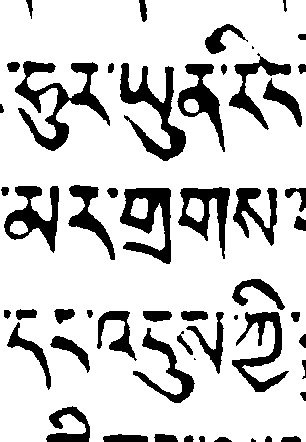 ཧུར་ཡུན་རིང
མར་གྲགས་
དང་འདུས་ཀྱི་